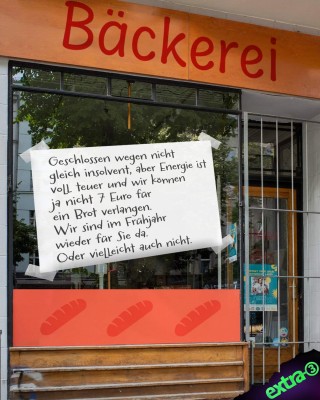 Bäckerei
Geschlossen wegen nicht
gleich insolvent, aber Energie ist
voll teuer und wir können
ja nicht 7 Euro für
ein Brot verlangen.
Wir sind im Frühjahr
wieder für Sie da.
Oder vielleicht auch nicht.
extra 3